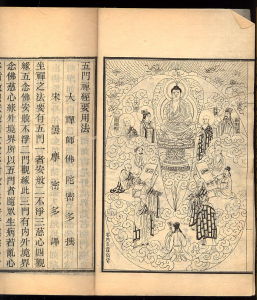 五門禪經要用法
大禪師佛陀蜜多撰
宋曇摩蜜多譯
坐禪之法要有五門一者安般二不淨三慈心四觀
緣五念佛安般不淨二門觀緣此三門有內外境界
念佛慈心緣外境界所以五門者隨眾生病若亂心